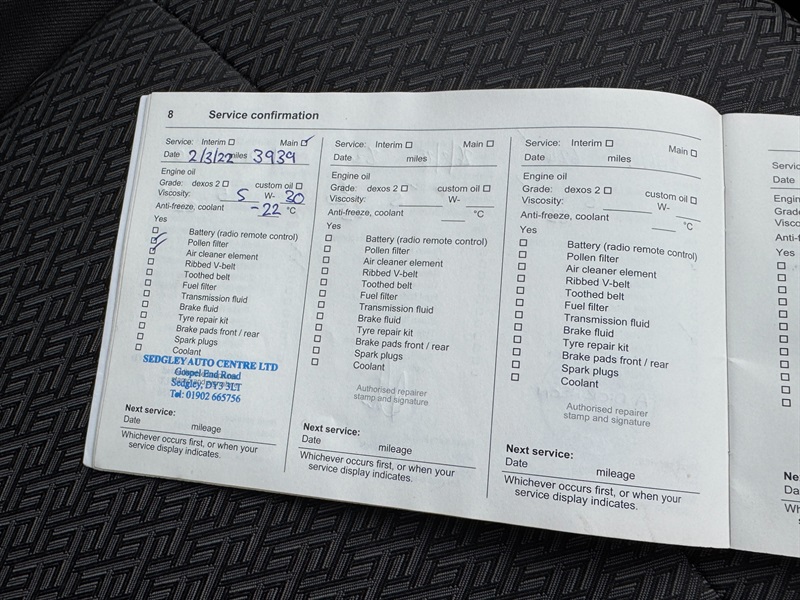 8 Service confirmation
Service: Interim ☐ Main ☑
Date 2/3/22 miles 3939
Engine oil
Grade: dexos 2 ☐ custom oil ☐
Viscosity: 5 W- 30
Anti-freeze, coolant -22 °C
Yes
☐ Battery (radio remote control)
☑ Pollen filter
☑ Air cleaner element
☐ Ribbed V-belt
☐ Toothed belt
☐ Fuel filter
☐ Transmission fluid
☐ Brake fluid
☐ Tyre repair kit
☐ Brake pads front / rear
☐ Spark plugs
☐ Coolant
SEDGLEY AUTO CENTRE LTD
Gospel End Road
Sedgley, DY3 3LT
Tel: 01902 665756
Next service:
Date mileage
Whichever occurs first, or when your
service display indicates.
Service: Interim ☐ Main ☐
Date miles
Engine oil
Grade: dexos 2 ☐ custom oil ☐
Viscosity: W-
Anti-freeze, coolant °C
Yes
☐ Battery (radio remote control)
☐ Pollen filter
☐ Air cleaner element
☐ Ribbed V-belt
☐ Toothed belt
☐ Fuel filter
☐ Transmission fluid
☐ Brake fluid
☐ Tyre repair kit
☐ Brake pads front / rear
☐ Spark plugs
☐ Coolant
Authorised repairer
stamp and signature
Next service:
Date mileage
Whichever occurs first, or when your
service display indicates.
Service: Interim ☐ Main ☐
Date miles
Engine oil
Grade: dexos 2 ☐ custom oil ☐
Viscosity: W-
Anti-freeze, coolant °C
Yes
☐ Battery (radio remote control)
☐ Pollen filter
☐ Air cleaner element
☐ Ribbed V-belt
☐ Toothed belt
☐ Fuel filter
☐ Transmission fluid
☐ Brake fluid
☐ Tyre repair kit
☐ Brake pads front / rear
☐ Spark plugs
☐ Coolant
Authorised repairer
stamp and signature
Next service:
Date mileage
Whichever occurs first, or when your
service display indicates.
Date
Yes